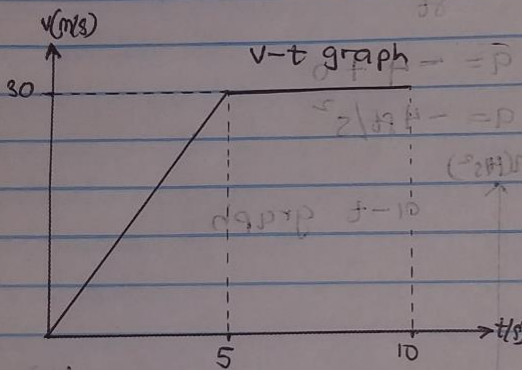 v(m/s)
v-t graph
30
5
10
t(s)